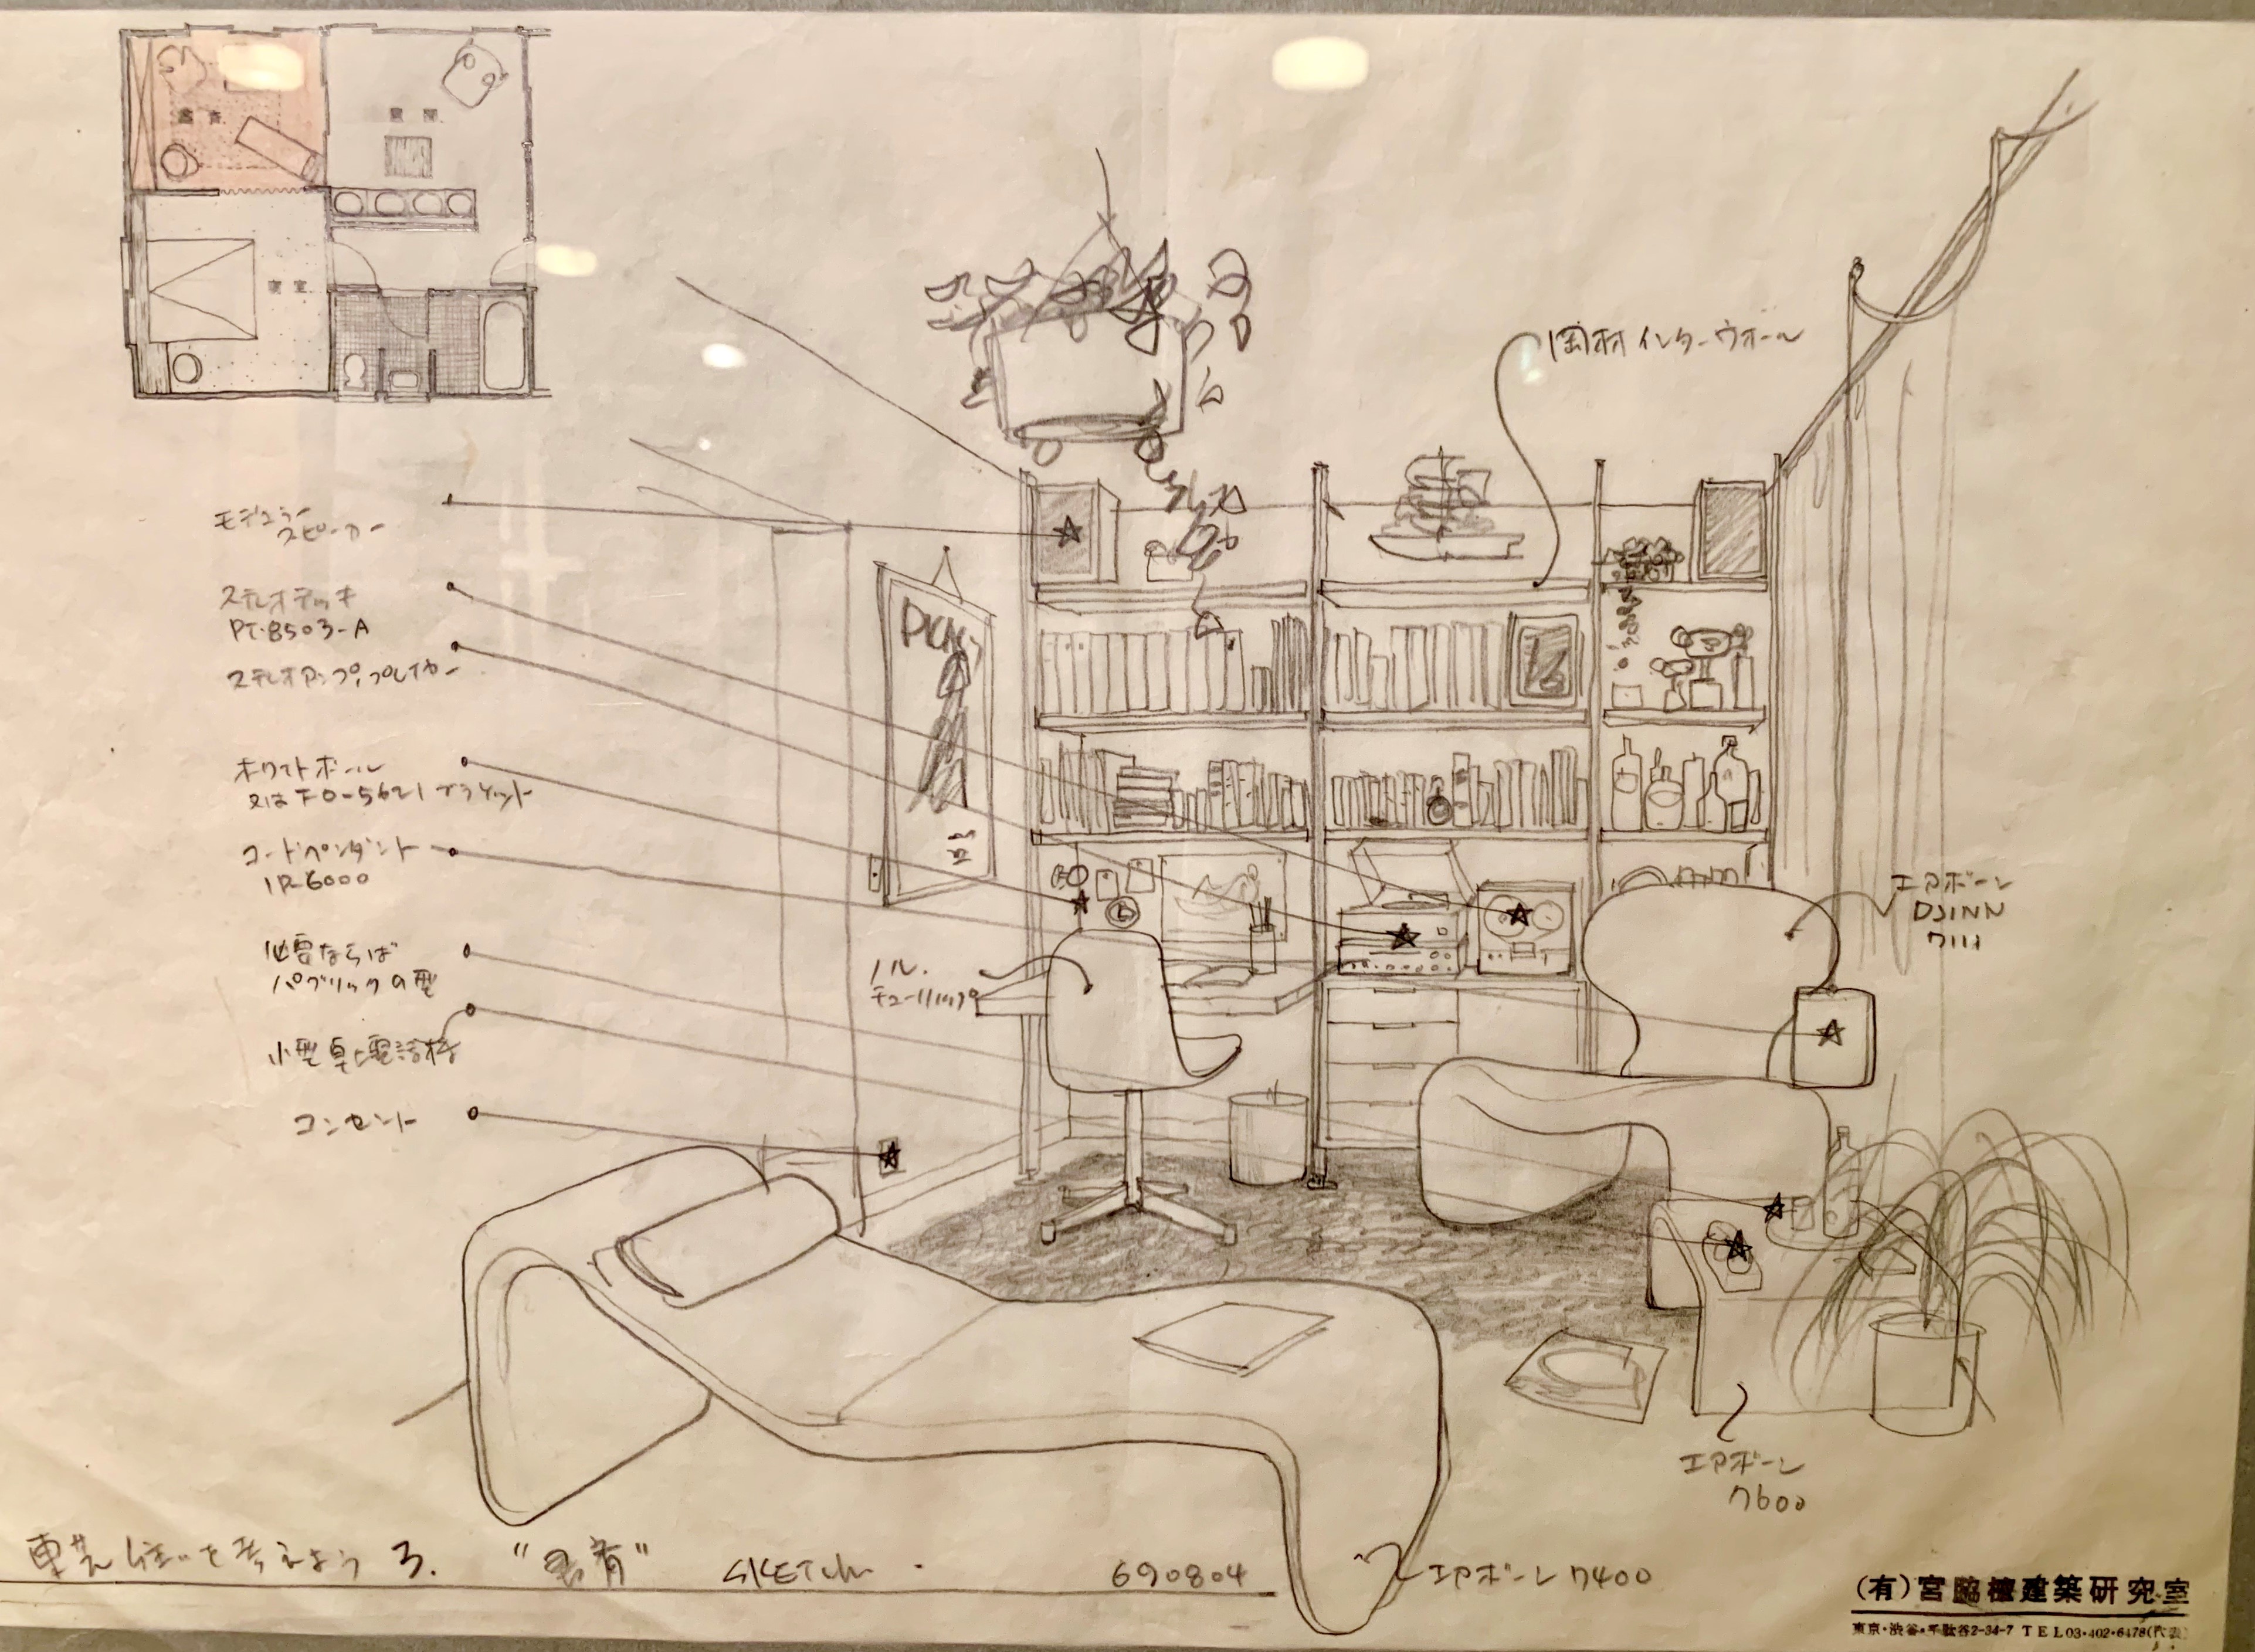 書斎
居間
寝室
モデュラー
スピーカー
ステレオデッキ
PT-8503-A
ステレオアンプ,プレイヤー
ホワイトボール
又はFO-5621 ブラケット
コードペンダント
IP-6000
必要ならば
パブリックの型
小型卓上電話機
コンセント
岡村インターウォール
ノル.
チューリップ
エアボーン
DJINN
エアボーン
7600
エアボーン 7400
住いを考えよう 3. "書斎" SKETCH 690804
(有)宮脇檀建築研究室
東京・渋谷・千駄谷2-34-7 TEL03・402・6478(代表)